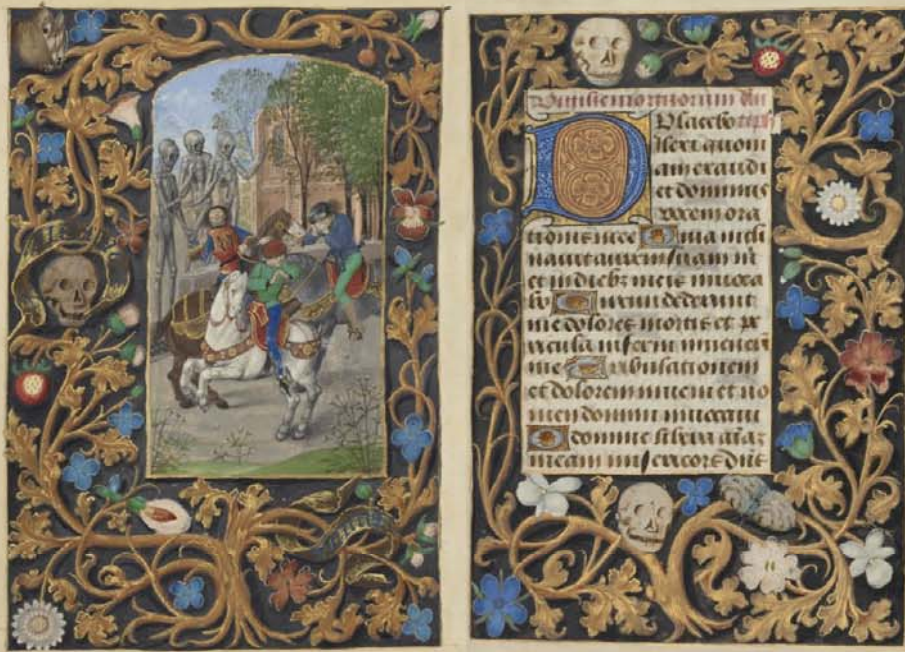 Vigilie mortuorum An
Placebo ps
Dilexi quoni
am exaudi
et dominus
vocem ora
tionis mee Quia incli
nauit aurem suam m̄
et in diebz meis inuoca
bo Circum dederunt
me dolores mortis et pe
ricula inferni inuener̄
me Tribulationem
et dolorem inueni et no
men domini inuocaui
O domine libera aīaz
meam misericors dn̄s